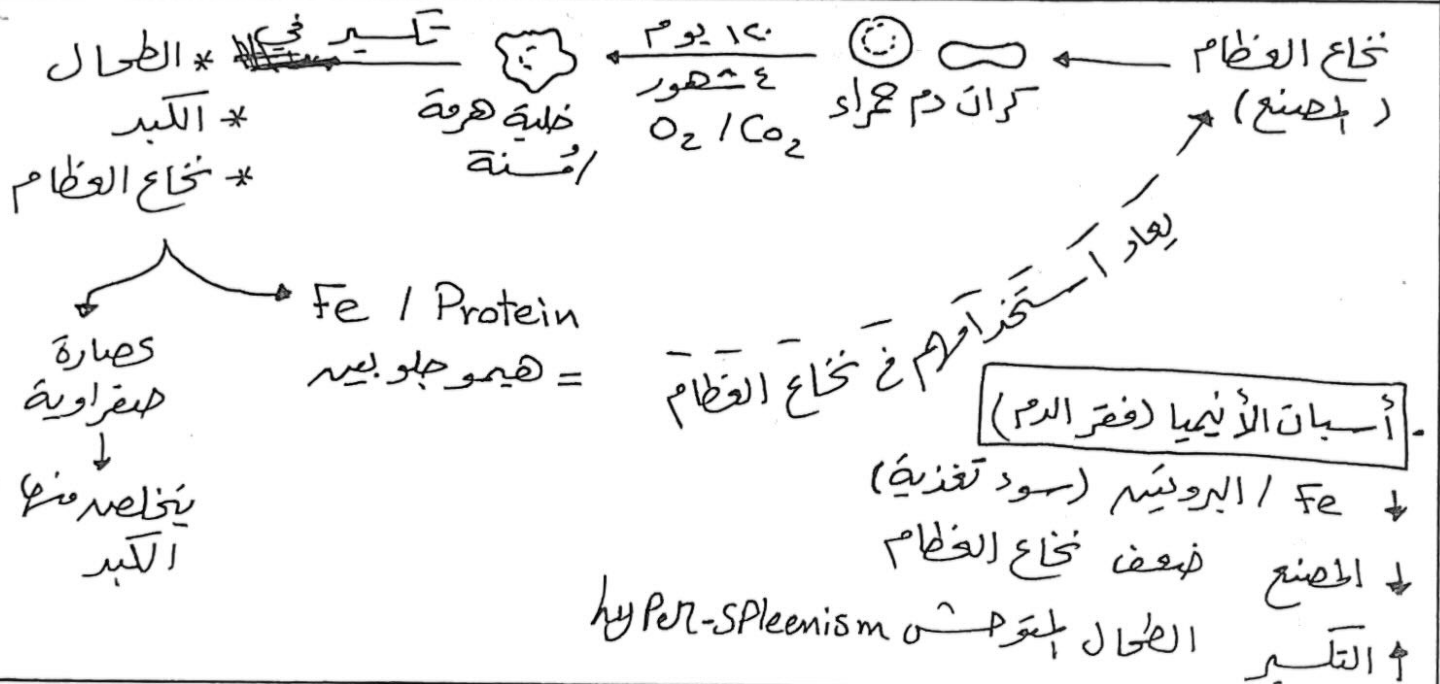 نخاع العظام
(المصنع)
كرات دم حمراء
١٢٠ يوم
٤ شهور
O2 / Co2
خلية هرمة
/ مُسنة
تكسير في
* الطحال
* الكبد
* نخاع العظام
Fe / Protein
= هيموجلوبين
عصارة
صفراوية
↓
يتخلص منها
الكبد
يعاد استخدامهم في نخاع العظام
. أسباب الأنيميا (فقر الدم)
↓ Fe / البروتين (سوء تغذية)
↓ المصنع ضعف نخاع العظام
↑ التكسير الطحال المتوحش hyper-spleenism